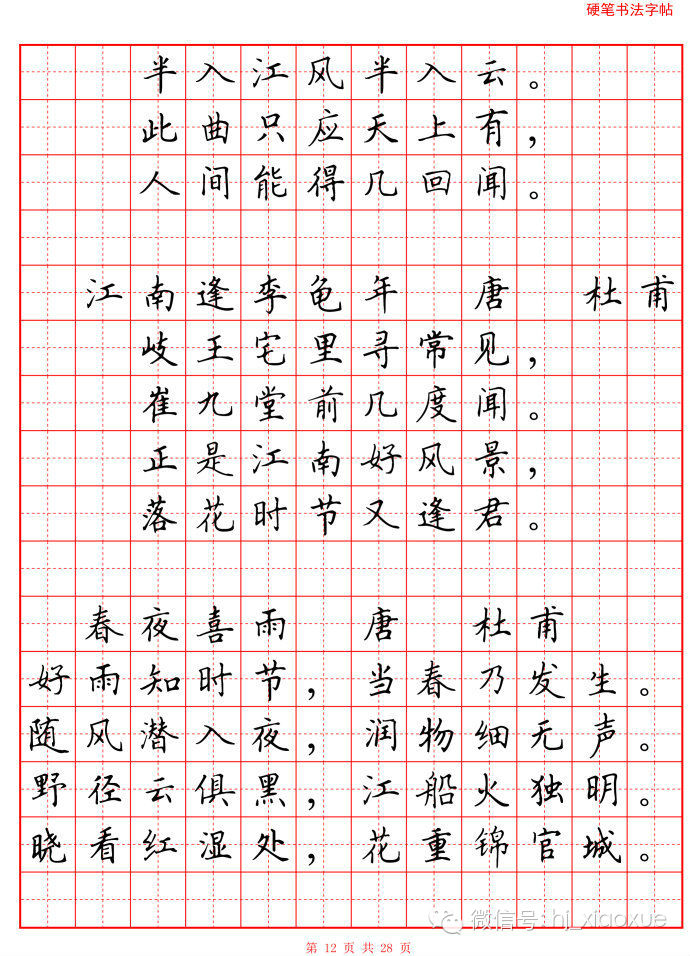 硬笔书法字帖
半入江风半入云。
此曲只应天上有，
人间能得几回闻。
江南逢李龟年 唐 杜甫
岐王宅里寻常见，
崔九堂前几度闻。
正是江南好风景，
落花时节又逢君。
春夜喜雨 唐 杜甫
好雨知时节，当春乃发生。
随风潜入夜，润物细无声。
野径云俱黑，江船火独明。
晓看红湿处，花重锦官城。
微信号: hj_xiaoxue
第 12 页 共 28 页